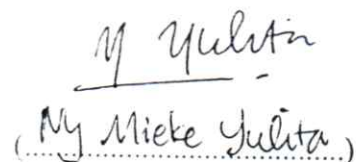 M Yulita
(Ny Mieke Yulita)